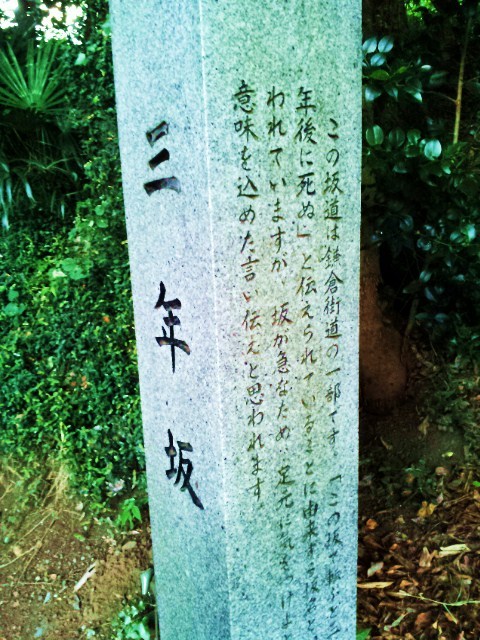 三年坂
この坂道は鎌倉街道の一部です。「この坂で転ぶと三
年後に死ぬ」と伝えられていることに由来する坂名と
われていますが、坂が急なため、足元に気をつけよ
意味を込めた言い伝えと思われます。